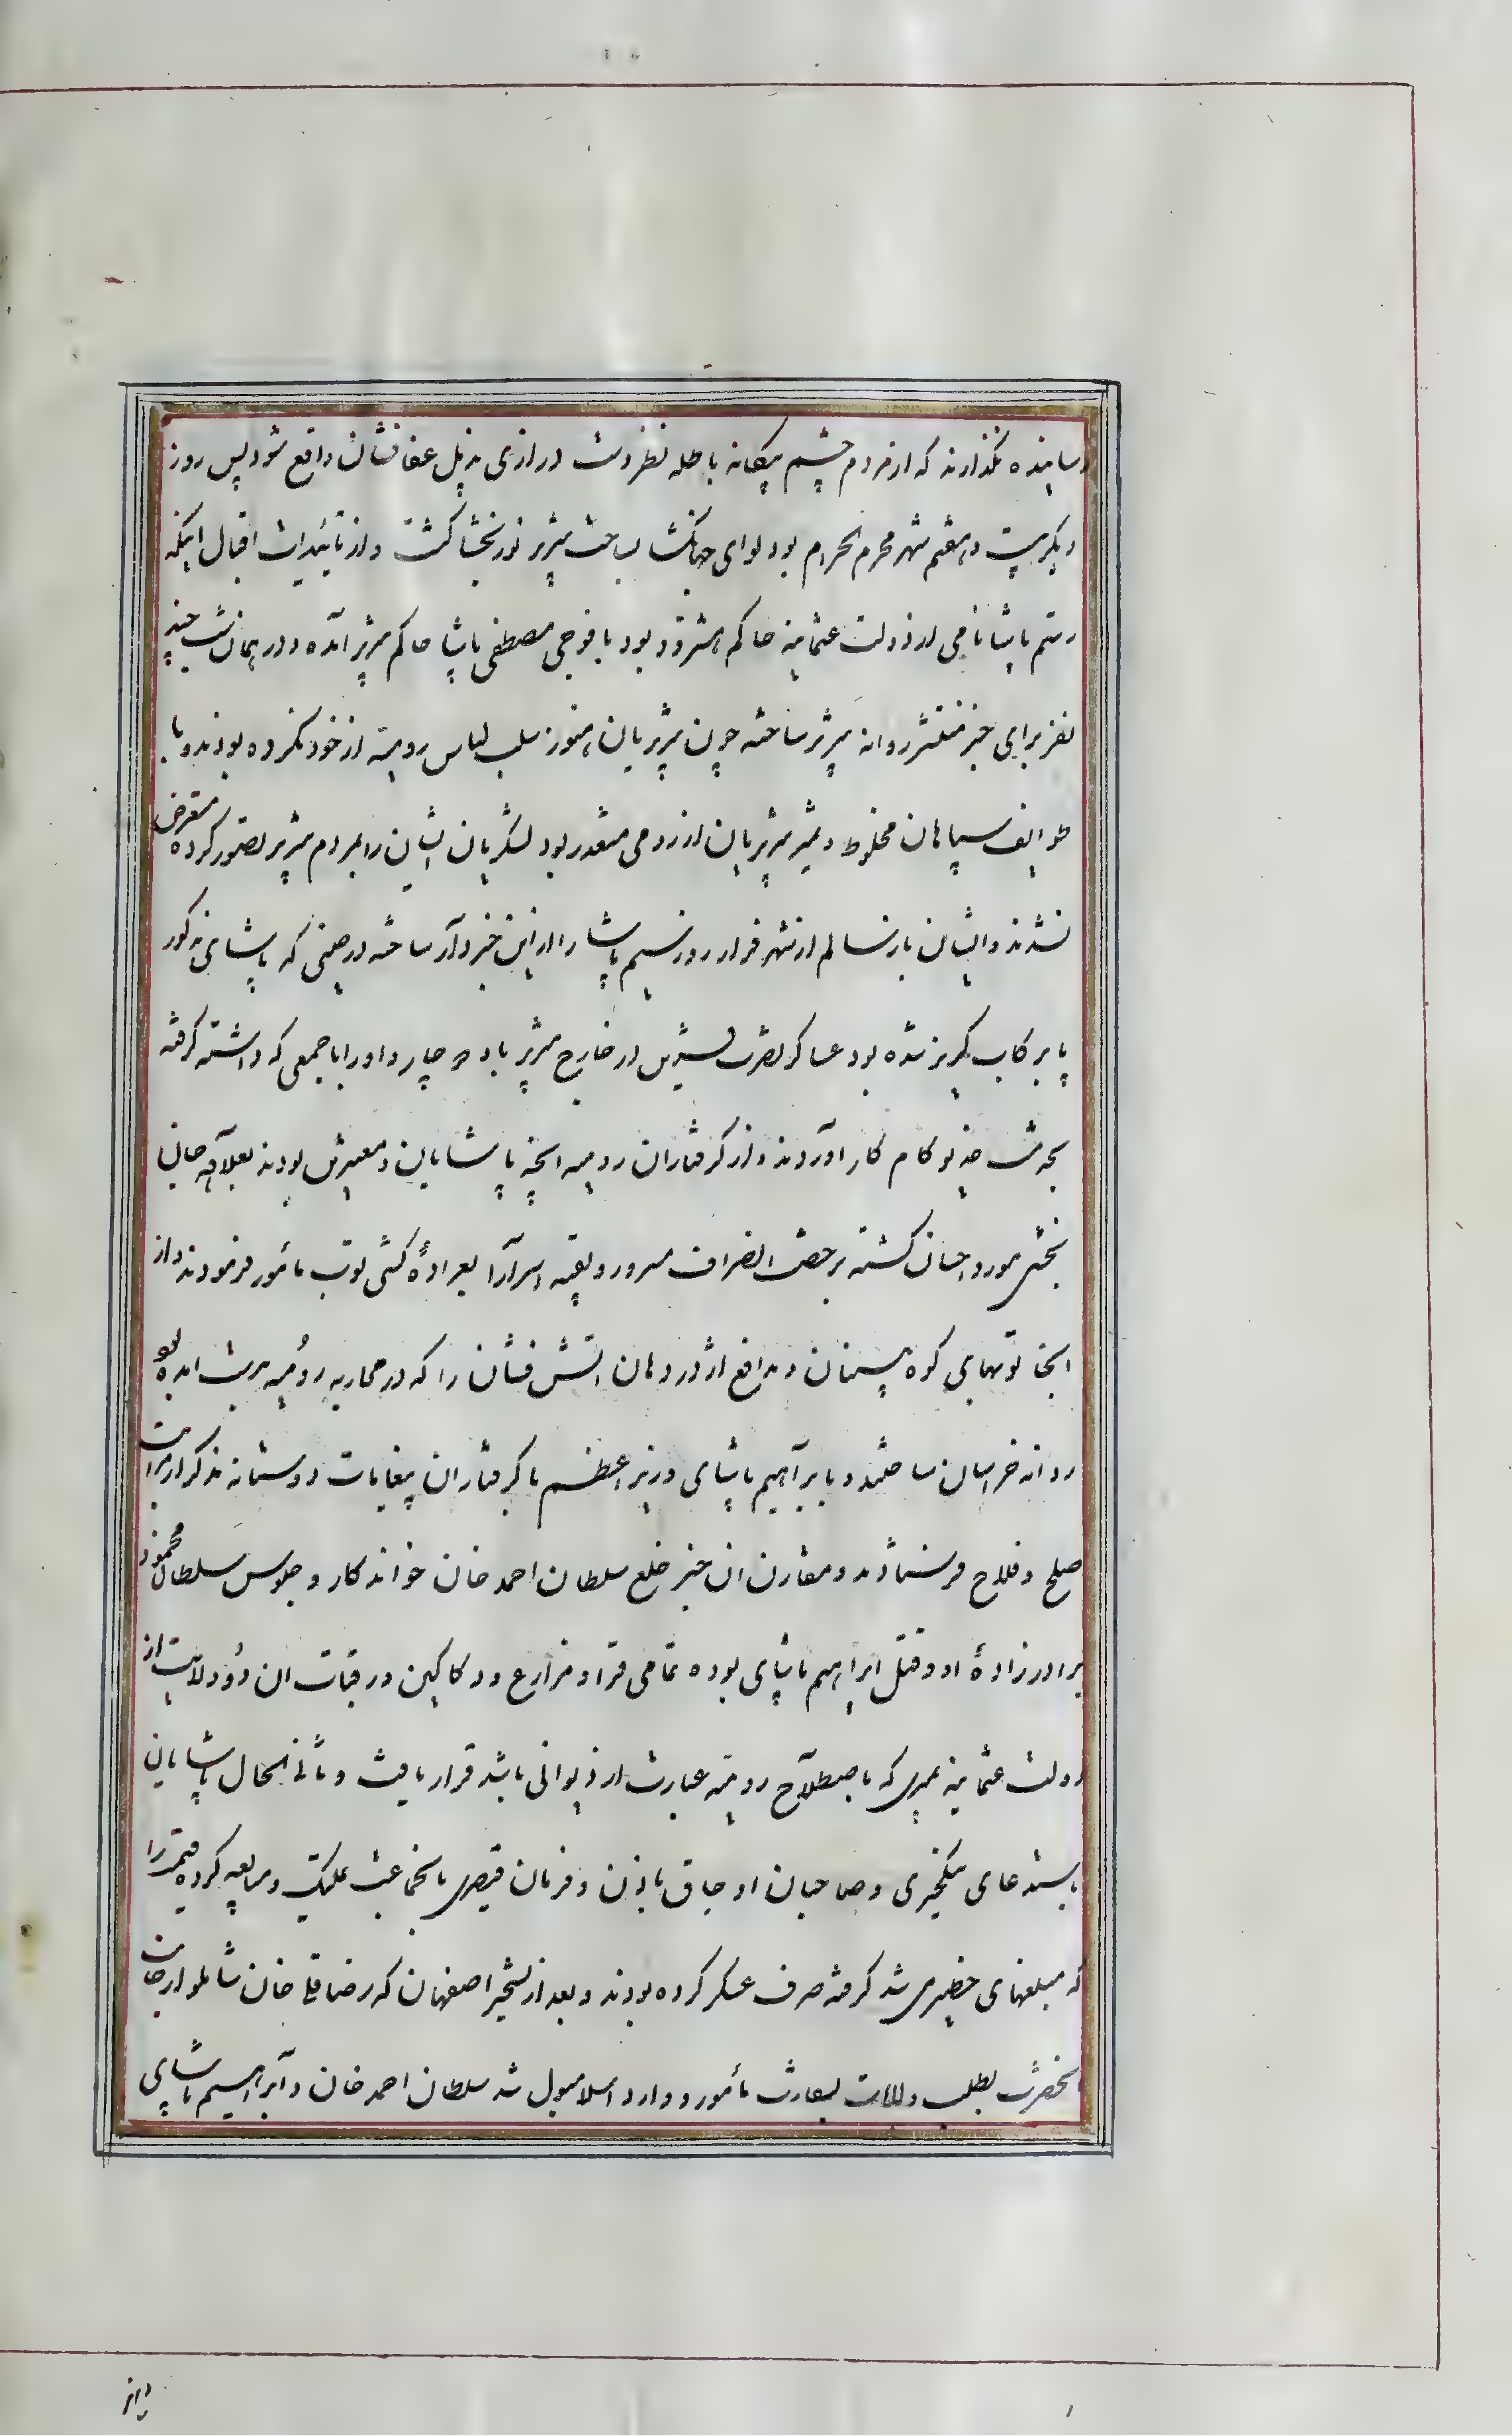 رسانیده نگذارند که از مردم چشم بیگانه باطله نظر دست درازی بذیل عفافشان واقع شود پس روز
دیگر بیست و هفتم شهر محرم الحرام بود لوای جهانگشا بساحت تبریز نور بخشا گشت و از تائیدات اقبال اینکه
رستم پاشا نامی از دولت عثمانیه حاکم هشترود بود با فوجی مصطفی پاشا حاکم تبریز آمده و در همان شب چند
نفر برای خبر منتشر روانه تبریز ساخته چون تبریزیان هنوز سلب لباس رومیه از خود نکرده بودند و با
طوایف سپاهان مخلوط و تمیز تبریزیان از رومی متعذر بود لشکریان ایشان را مردم تبریز تصور کرده متعرض
نشدند و ایشان باز سالم از شهر فرار روز سیم پاشا را از این خبردار ساخته در حینی که پاشای مذکور
پا برکاب گریز شده بود عساکر نصرت قرین در خارج تبریز باو دچار و او را با جمعی که داشت گرفته
بخدمت خدیو کامکار آوردند و از گرفتاران رومیه آنچه پاشایان و معتبرین بودند بعلاوه جان
بخشی مورد احسان گشته برخصت انصراف مسرور و بقیه اسرا را بعراده کشی توپ مأمور فرمودند و از
آنجا توپهای کوه پیستان و مدافع اژدر دهان آتش فشان را که در محاربه رومیه بدست آمده بود
روانه خراسان ساختند و بابراهیم پاشای وزیر اعظم با گرفتاران پیغامات دوستانه بذکر مراتب
صلح و فلاح فرستادند و مقارن آن خبر خلع سلطان احمد خان خواندکار و جلوس سلطان محمود
برادرزادهٔ او و قتل ابراهیم پاشای بوده تمامی قرا و مزارع و دکاکین و رقبات آن دو ولایت از
دولت عثمانیه میری که باصطلاح رومیه عبارت از دیوانی باشد قرار یافت و ثانی الحال پاشایان
باستدعای ینگچری و صاحبان اوجاق باذن و فرمان قیصری بآنجماعت تملیک و مبایعه کرده قیمت را
که مبلغهای خطیری شد گرفته صرف عسکر کرده بودند و بعد از تسخیر اصفهان که رضاقلی خان شاملو از جانب
آنحضرت بطلب ولایات بسفارت مأمور و وارد اسلامبول شد سلطان احمد خان و ابراهیم پاشای